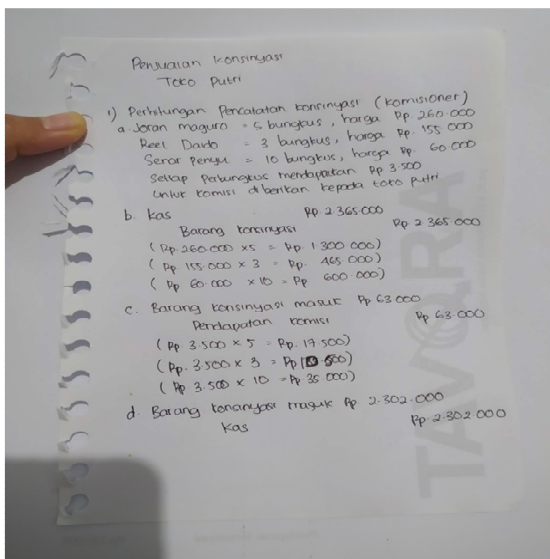 Penjualan Konsinyasi
Toko Putri
1) Perhitungan Pencatatan konsinyasi (Komisioner)
a. Joran maguro = 5 bungkus, harga Rp 260.000
Reel Daido = 3 bungkus, harga Rp. 155 000
Senar Penyu = 10 bungkus, harga Rp. 60 000
Setiap perbungkus mendapatkan Rp 3.500
untuk komisi diberikan kepada toko putri
b. kas Rp 2 365.000
Barang konsinyasi Rp 2 365 000
(Rp. 260.000 x5 = Rp. 1 300 000)
(Rp 155.000 x 3 = Rp. 465 000)
(Rp 60 000 x 10 = Rp 600 000)
c. Barang konsinyasi masuk Rp 63 000
Pendapatan komisi Rp 63.000
(Rp 3.500 x 5 = Rp. 17 500)
(Rp. 3.500 x 3 = Rp 10 500)
(Rp 3.500 x 10 = Rp 35 000)
d. Barang konsinyasi masuk Rp 2.302.000
Kas Rp. 2.302 000
TAVQRA